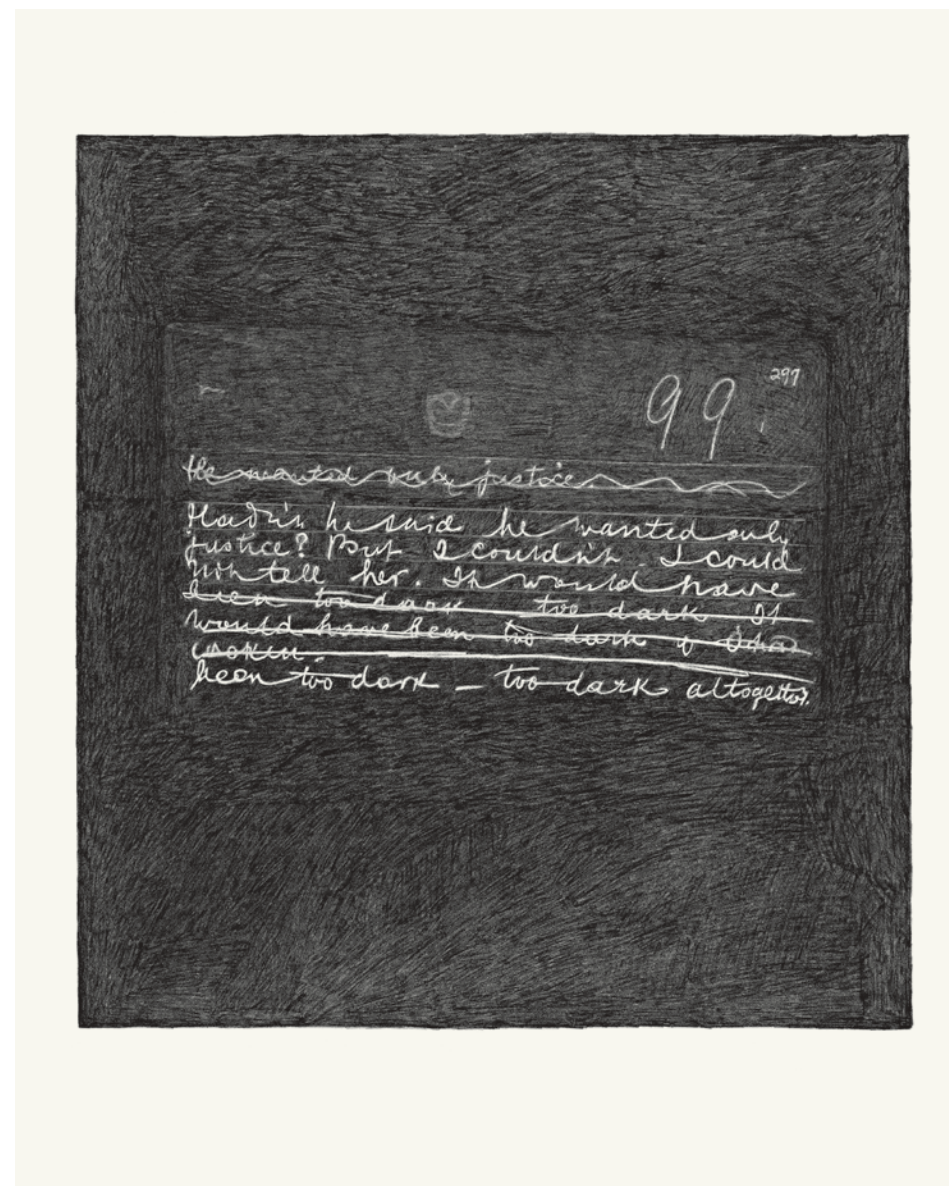 297
99
He wanted only justice
Hadn't he said he wanted only
justice? But I couldn't. I could
not tell her. It would have
been too dark too dark It
would have been too dark
been too dark – too dark altogether.